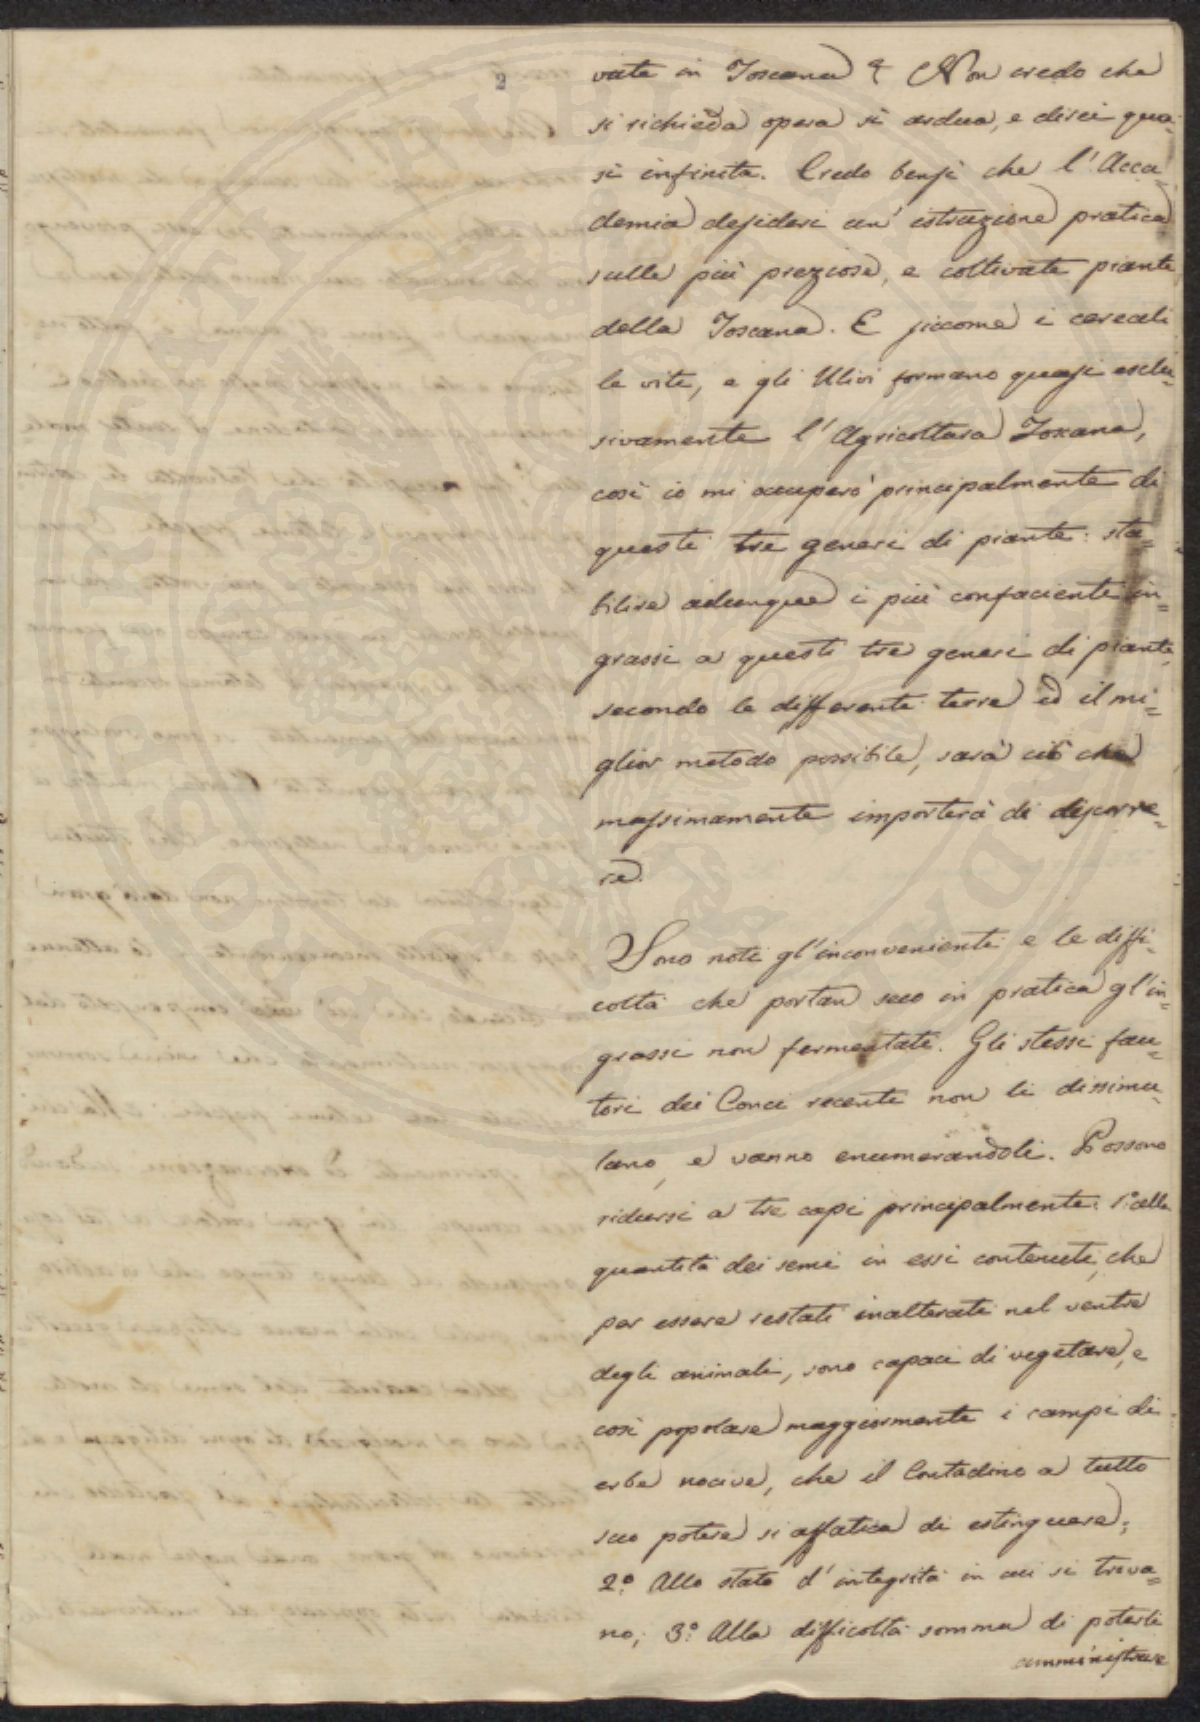 2
vate in Toscana? Non credo che
si richieda opera sì ardua, e direi qua-
si infinita. Credo bensì che l'Acca-
demia desideri un' istruzione pratica
sulle più preziose, e coltivate piante
della Toscana. E siccome i cereali
le vite, e gli Ulivi formano quasi esclu-
sivamente l'Agricoltura Toscana,
così io mi occuperò principalmente di
questi tre generi di piante: sta-
bilire adunque i più confacienti in-
grassi a questi tre generi di piante,
secondo le differenti terre ed il mi-
glior metodo possibile, sarà ciò che
massimamente importerà di discorre-
re.
Sono noti gl'inconvenienti e le diffi-
coltà che portan seco in pratica gl'in-
grassi non fermentati. Gli stessi fau-
tori dei Conci recenti non li dissimu-
lano, e vanno enumerandoli. Possono
ridursi a tre capi principalmente: 1º alla
quantità dei semi in essi contenuti, che
per essere restati inalterati nel ventre
degli animali, sono capaci di vegetare, e
così popolare maggiormente i campi di
erbe nocive, che il Contadino a tutto
suo potere si affatica di estinguere;
2º Allo stato d'integrità in cui si trova-
no; 3º Alla difficoltà somma di poterli
amministrare